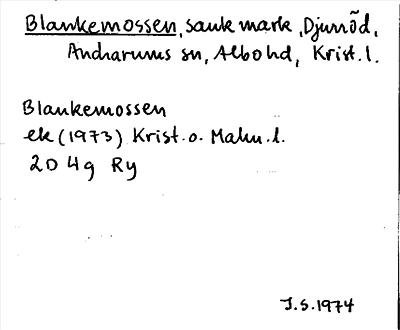 Blankemossen, sank mark, Djurröd,
Andrarums sn, Albo hd, Krist. l.
Blankemossen
ek (1973) Krist. o. Malm. l.
2D 4g Ry
J.S. 1974